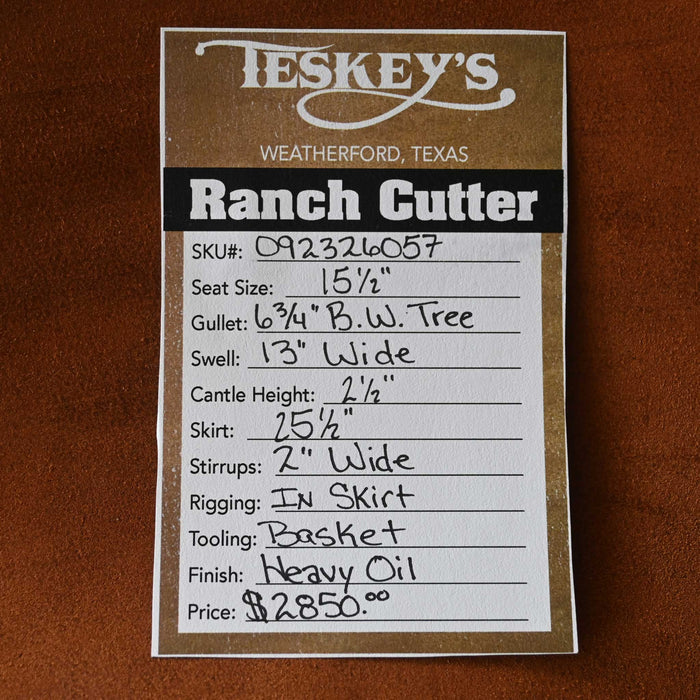 TESKEY'S
WEATHERFORD, TEXAS
Ranch Cutter
SKU#: 092326057
Seat Size: 15½"
Gullet: 6¾" B.W. Tree
Swell: 13" Wide
Cantle Height: 2½"
Skirt: 25½"
Stirrups: 2" Wide
Rigging: In Skirt
Tooling: Basket
Finish: Heavy Oil
Price: $2850.00